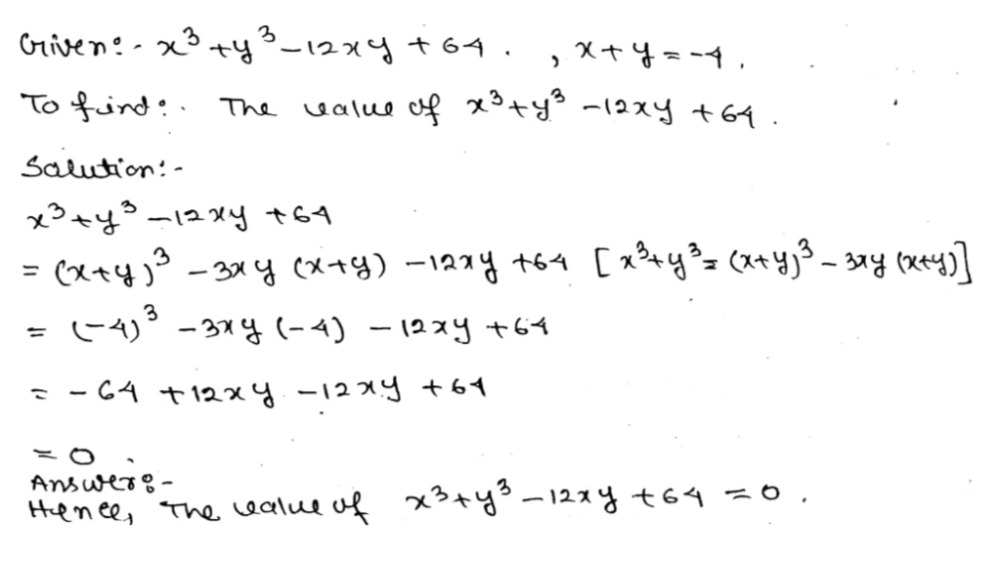 Given:- x³+y³-12xy + 64. , x+y=-4.
To find:. The value of x³+y³ -12xy +64.
Solution:-
x³+y³ -12xy +64
= (x+y)³ -3xy (x+y) -12xy +64 [x³+y³= (x+y)³ - 3xy (x+y)]
= (-4)³ -3xy (-4) -12xy +64
= -64 +12xy -12xy +64
= 0.
Answer:-
Hence, The value of x³+y³ -12xy +64 = 0.